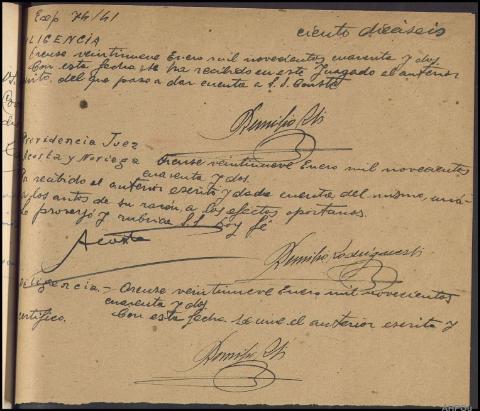 Exp 74/41
ciento dieciseis
LIGENCIA
Orense veintinueve Enero mil novecientos cuarenta y dos.
Con esta fecha se ha recibido en este Juzgado el anterior
del que paso a dar cuenta a S.S. Consta
Providencia Juez
Acosta y Noriega Orense veintinueve Enero mil novecientos
cuarenta y dos.
recibido el anterior escrito y dada cuenta del mismo,
los autos de su razón, a los efectos oportunos.
proveyó y rubrica S.S. Doy fé
Acosta
Remilio
ligencia - Orense veintinueve Enero mil novecientos
cuarenta y dos
Con esta fecha se une el anterior escrito y
rtifico.